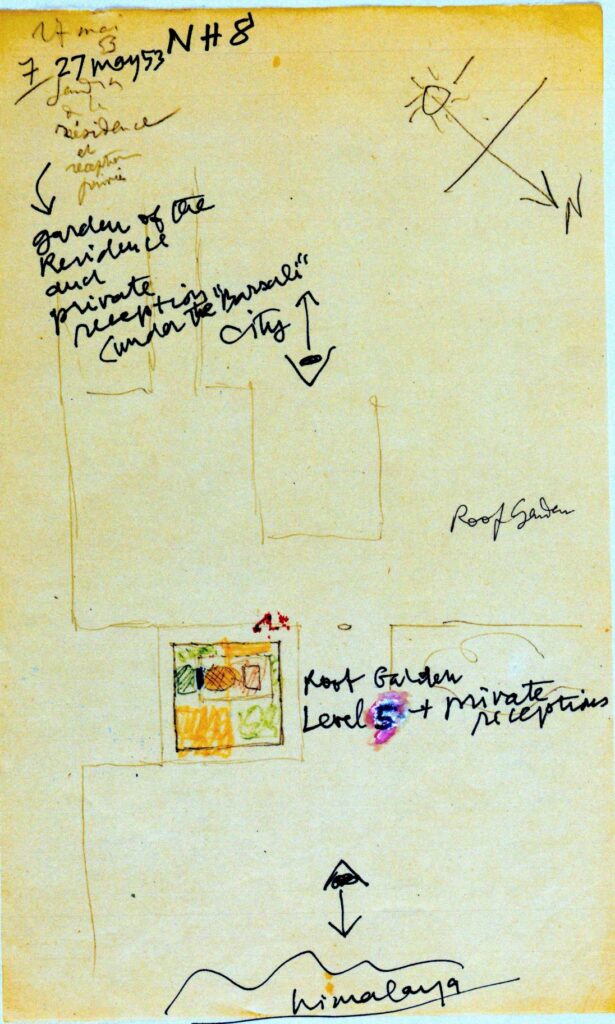 17 mai
53
7 27 may 53 NH 8
jardin
de la
résidence
et
reception
privée
garden of the
Residence
and
private
reception
(under the "Barsali"
City
N
Roof Garden
Roof Garden
Level 5 + private
receptions
himalaya